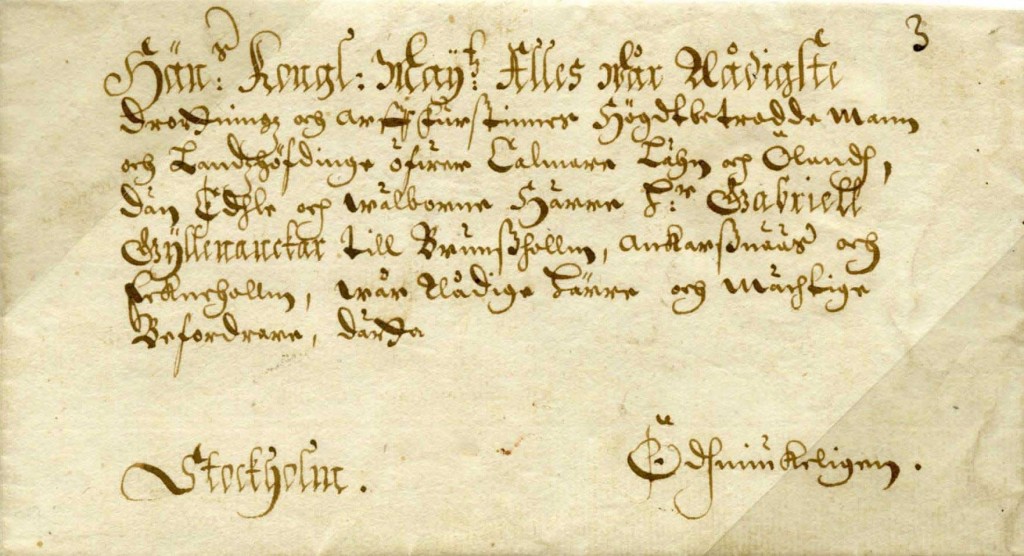 3
Hänˢ: Kongl: Maÿᵗᶻ: Alles wår Nådigste
Drottningz och Arff Furstinnes Högdtbetrodde Mann
och Landzhöfdinge öfwer Calmare Lähn och Ölandh,
dän Edhle och wälborne Härre H:ʳ Gabriell
Gÿllenanckar till Brunssholm, Ankarssnääs och
wår Nådige Härre och Mächtige
Befordrare, dätta
Stockholm.
Ödhmiukeligen.